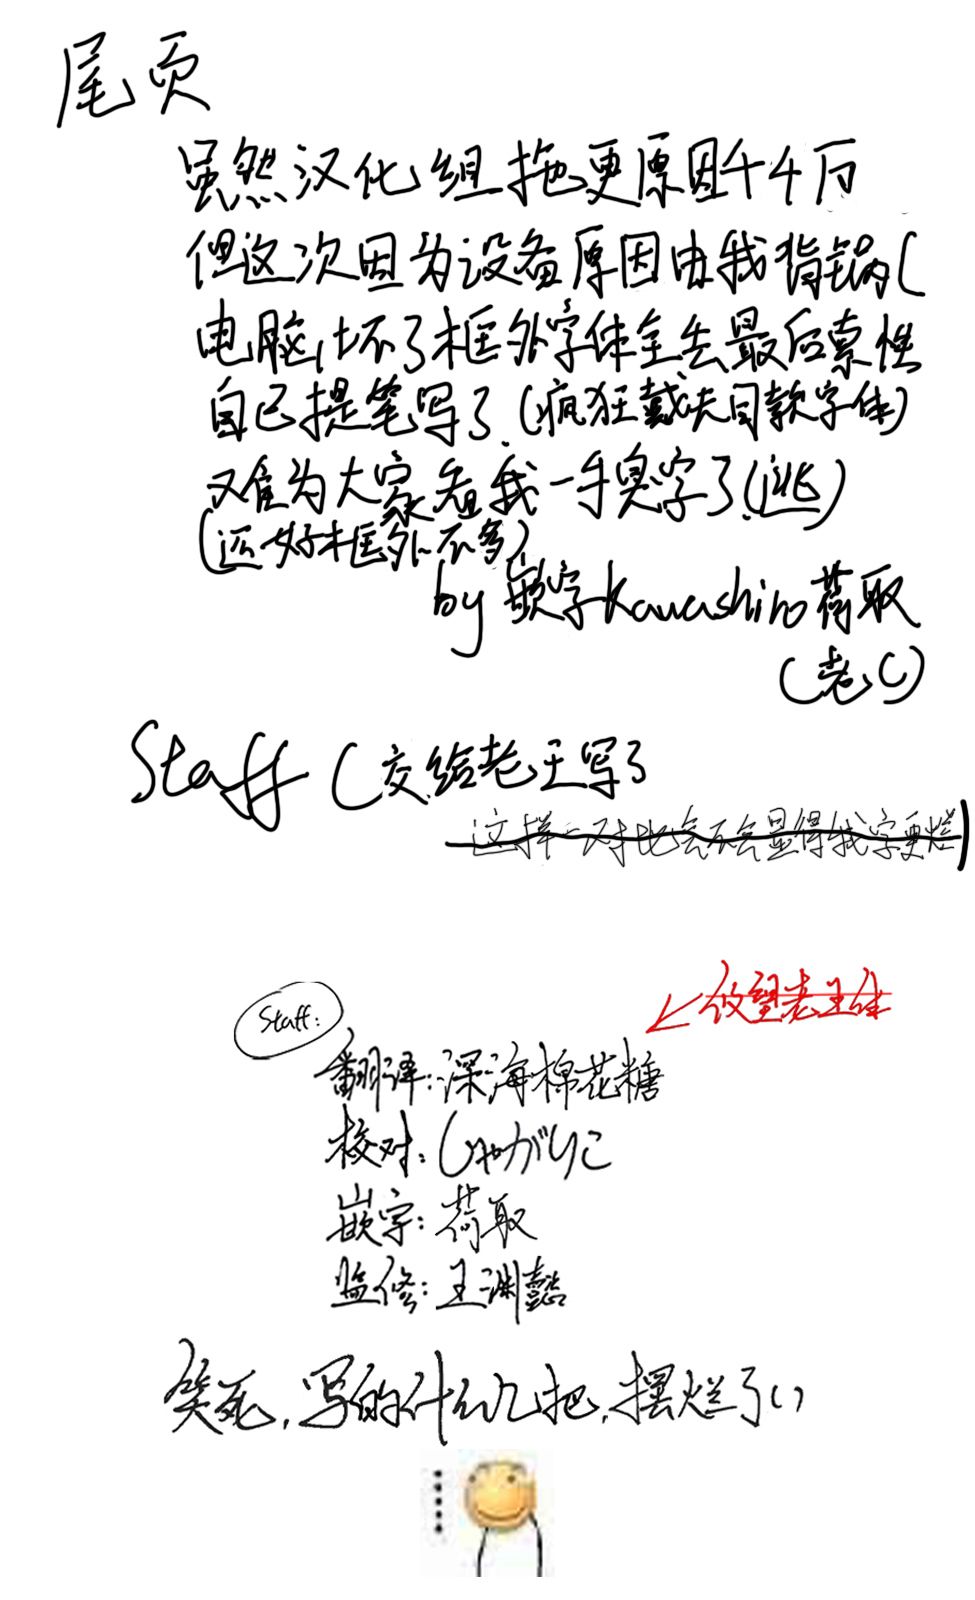 尾页
虽然汉化组拖更原因千千万
但这次因为设备原因由我背锅(
电脑坏了框外字体全丢最后索性
自己提笔写了(疯狂戴夫同款字体)
难为大家看我一手臭字了(逃)
(还好框外不多)
by 嵌字Kawashiro荷取
(老C)
Staff (交给老王写了
这样一对比会不会显得我字更烂
老王体
Staff:
翻译:深海棉花糖
校对:じゃがりこ
嵌字:荷取
监修:王渊懿
笑死,写的什么几把,摆烂了()